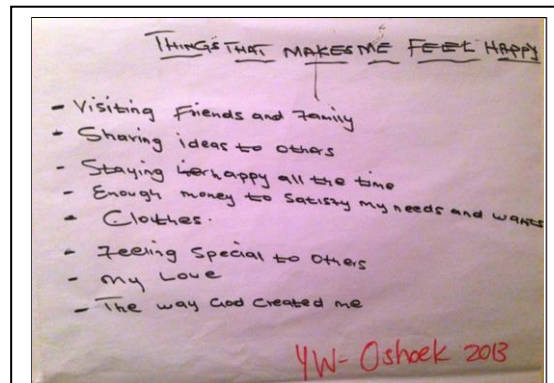 THINGS THAT MAKES ME FEEL HAPPY
- Visiting Friends and Family
- Sharing ideas to others
- Staying happy all the time
- Enough money to satisfy my needs and wants
- Clothes.
- Feeling Special to Others
- My Love
- The way God created me
YW- Oshoek 2013